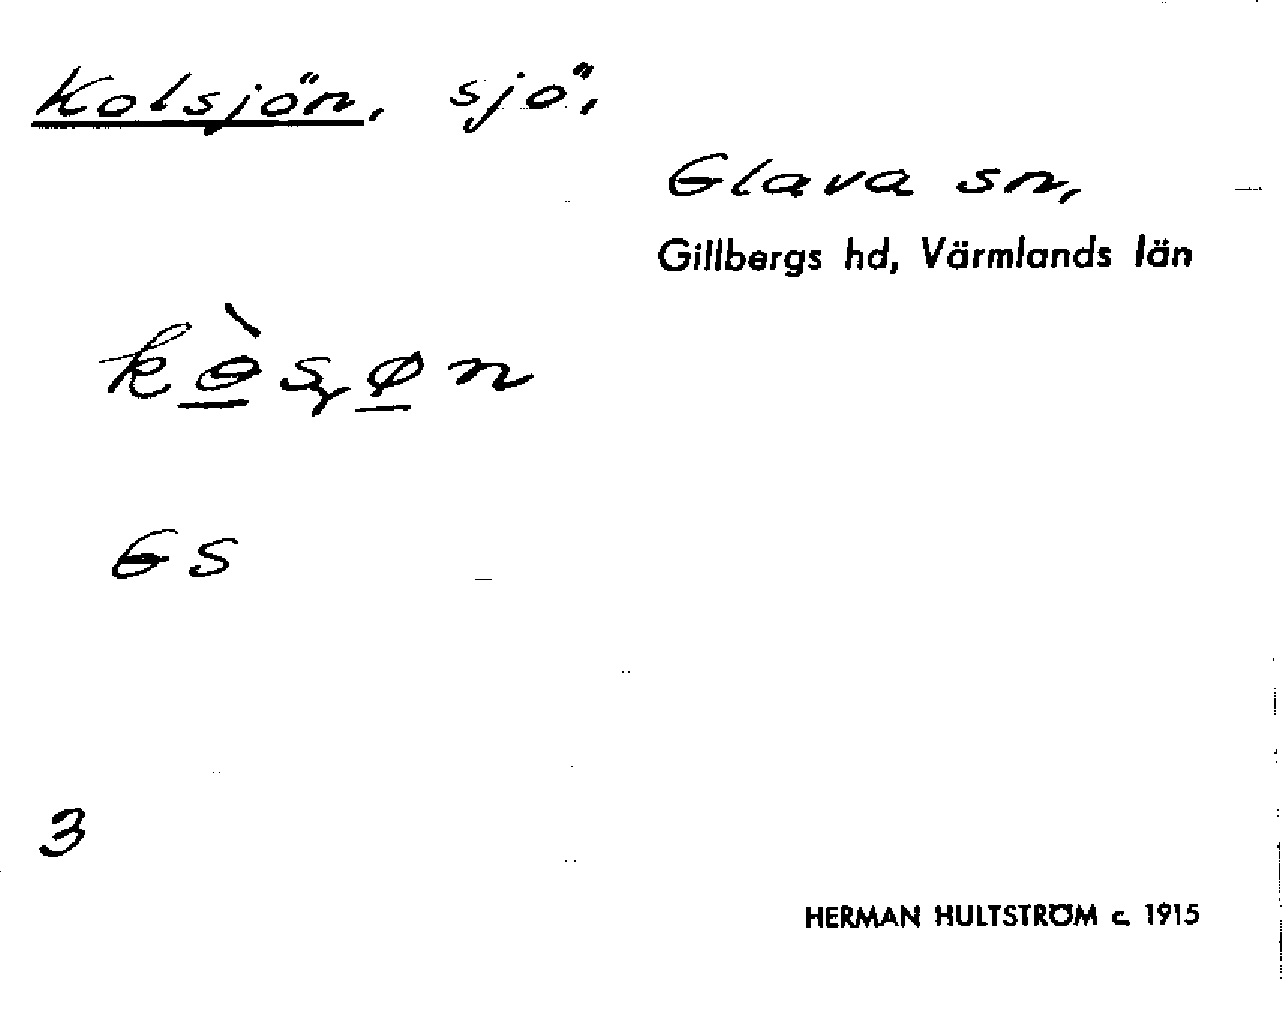 Kolsjön, sjö,
Glava sn,
Gillbergs hd, Värmlands län
GS
3
HERMAN HULTSTRÖM c. 1915